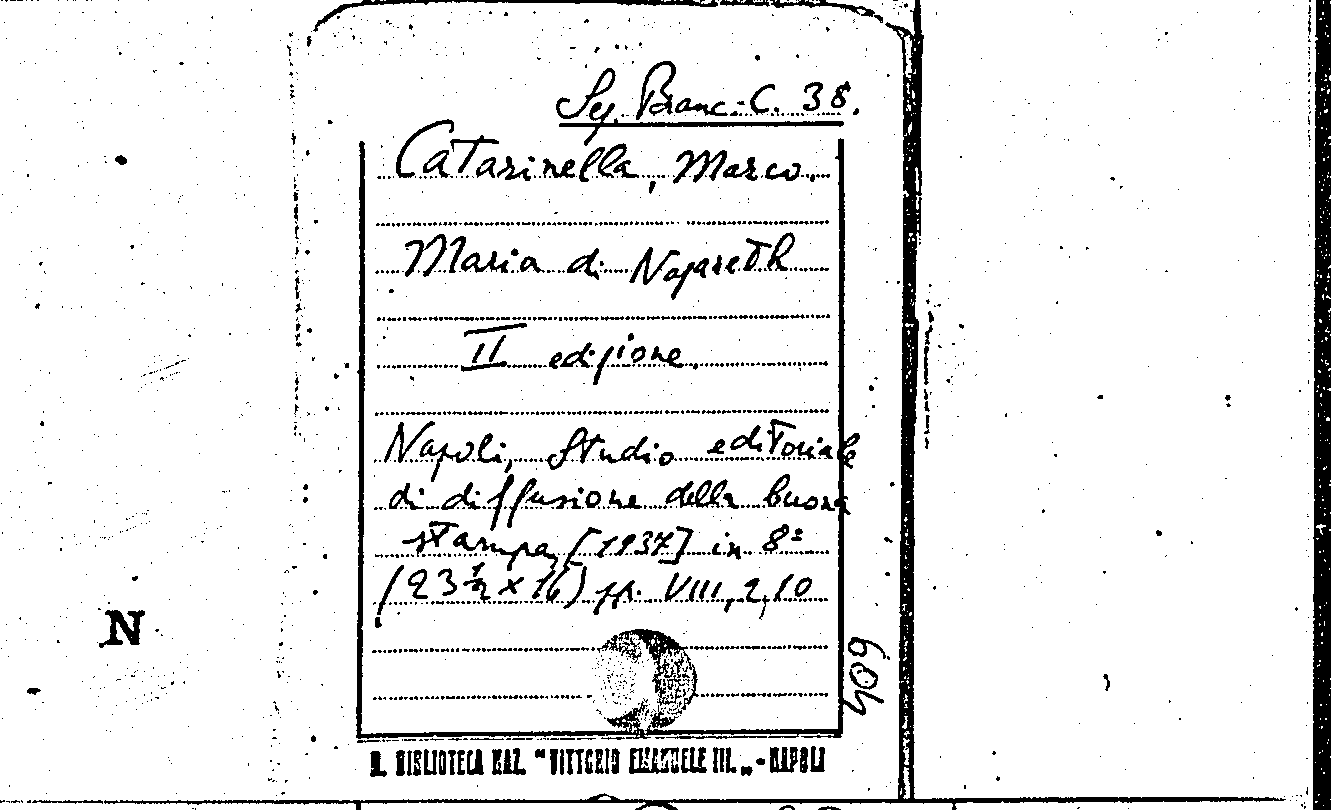 Sej. Branc. C. 38.
Catarinella, Marco.
Maria di Nazareth
II edizione.
Napoli, Studio editoriale
di diffusione della buona
stampa, [1937] in 8º
(23 ½ x 16) pp. VIII, 210
N
409
R. BIBLIOTECA NAZ. "VITTORIO EMANUELE III." - NAPOLI